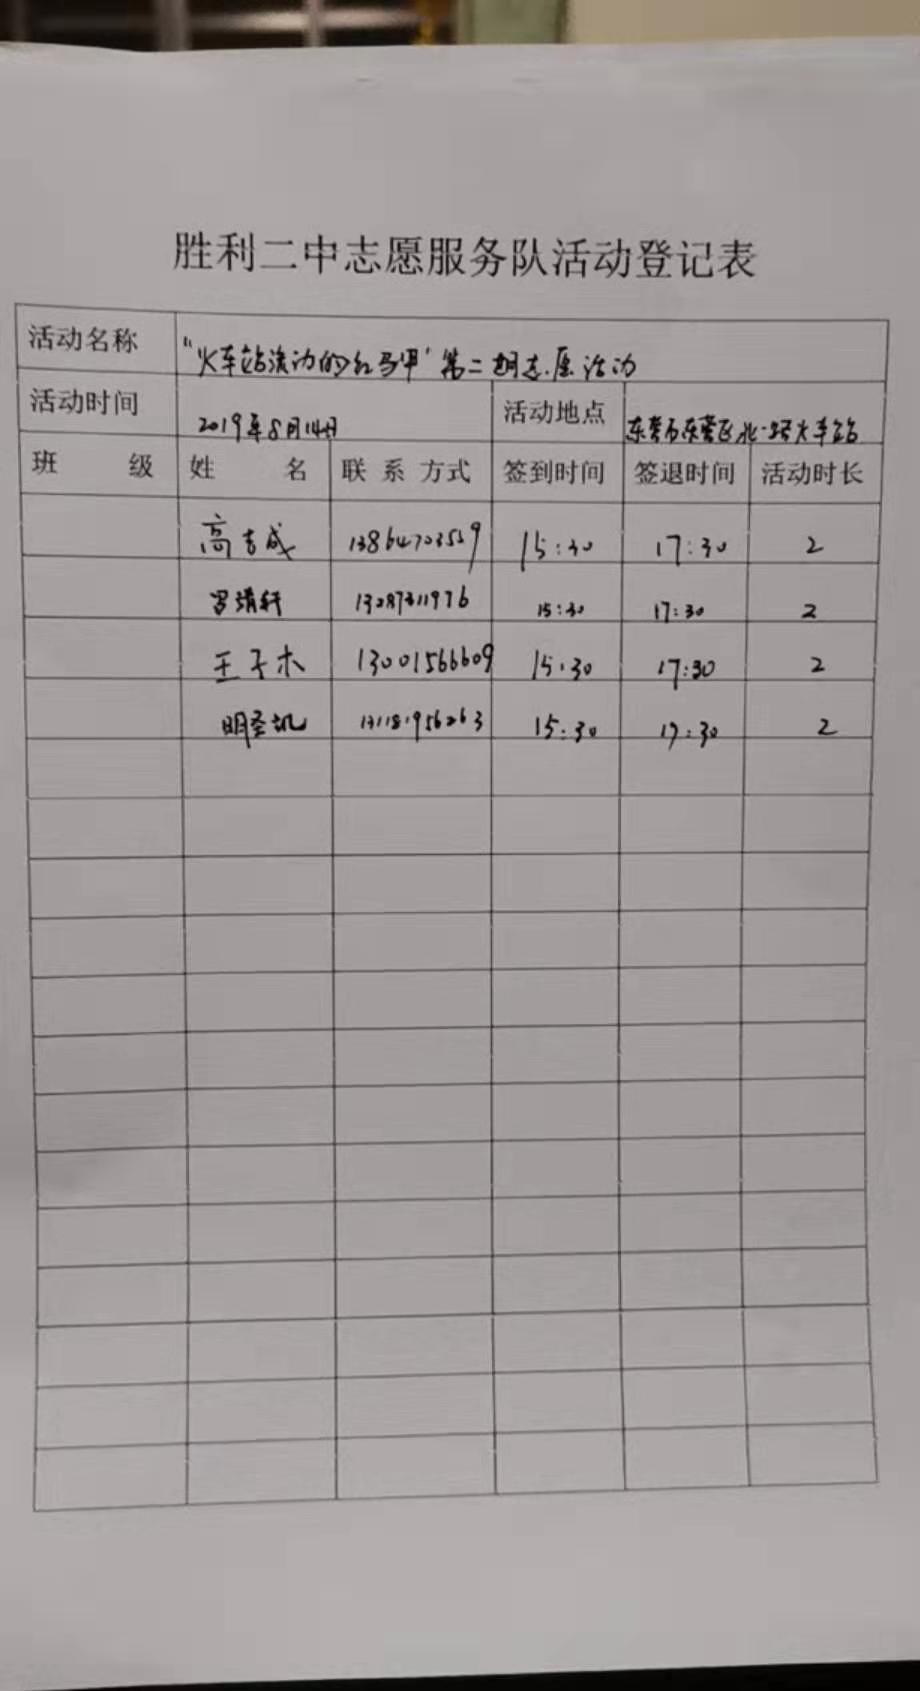 胜利二中志愿服务队活动登记表
活动名称 "火车站流动的红马甲"第二期志愿活动
活动时间 2019年8月14日 活动地点 东营市东营区北一路火车站
班 级 姓 名 联系方式 签到时间 签退时间 活动时长
高吉成 13864703559 15:30 17:30 2
15:30 17:30 2
王子木 13001566609 15:30 17:30 2
明圣凯 15:30 17:30 2